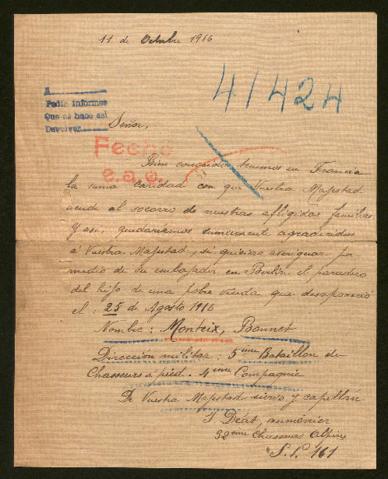 11 de Octubre 1916
41424
A
Pedir informes
Que es hebo del
Devolver
Señor,
Fecho
e.a.o.
Bien conocida tenemos en Francia
la suma caridad con que Vuestra Majestad
acude al socorro de nuestras afligidas familias
y asi, quedariamos sumamente agradecidos
á Vuestra Majestad, si quisiera averiguar por
medio de su embajador en Berlin, el paradero
del hijo de una pobre viuda, que desapareció
el . 25 de Agosto 1916
Nombre : Monteix, Bonnet
Dirección militar : 5ème Bataillon de
Chasseurs á pied. 4ème Compagnie
De Vuestra Majestad siervo y capellán
J. Déat, aumônier
52ème Chasseurs Alpins
S.P. 161